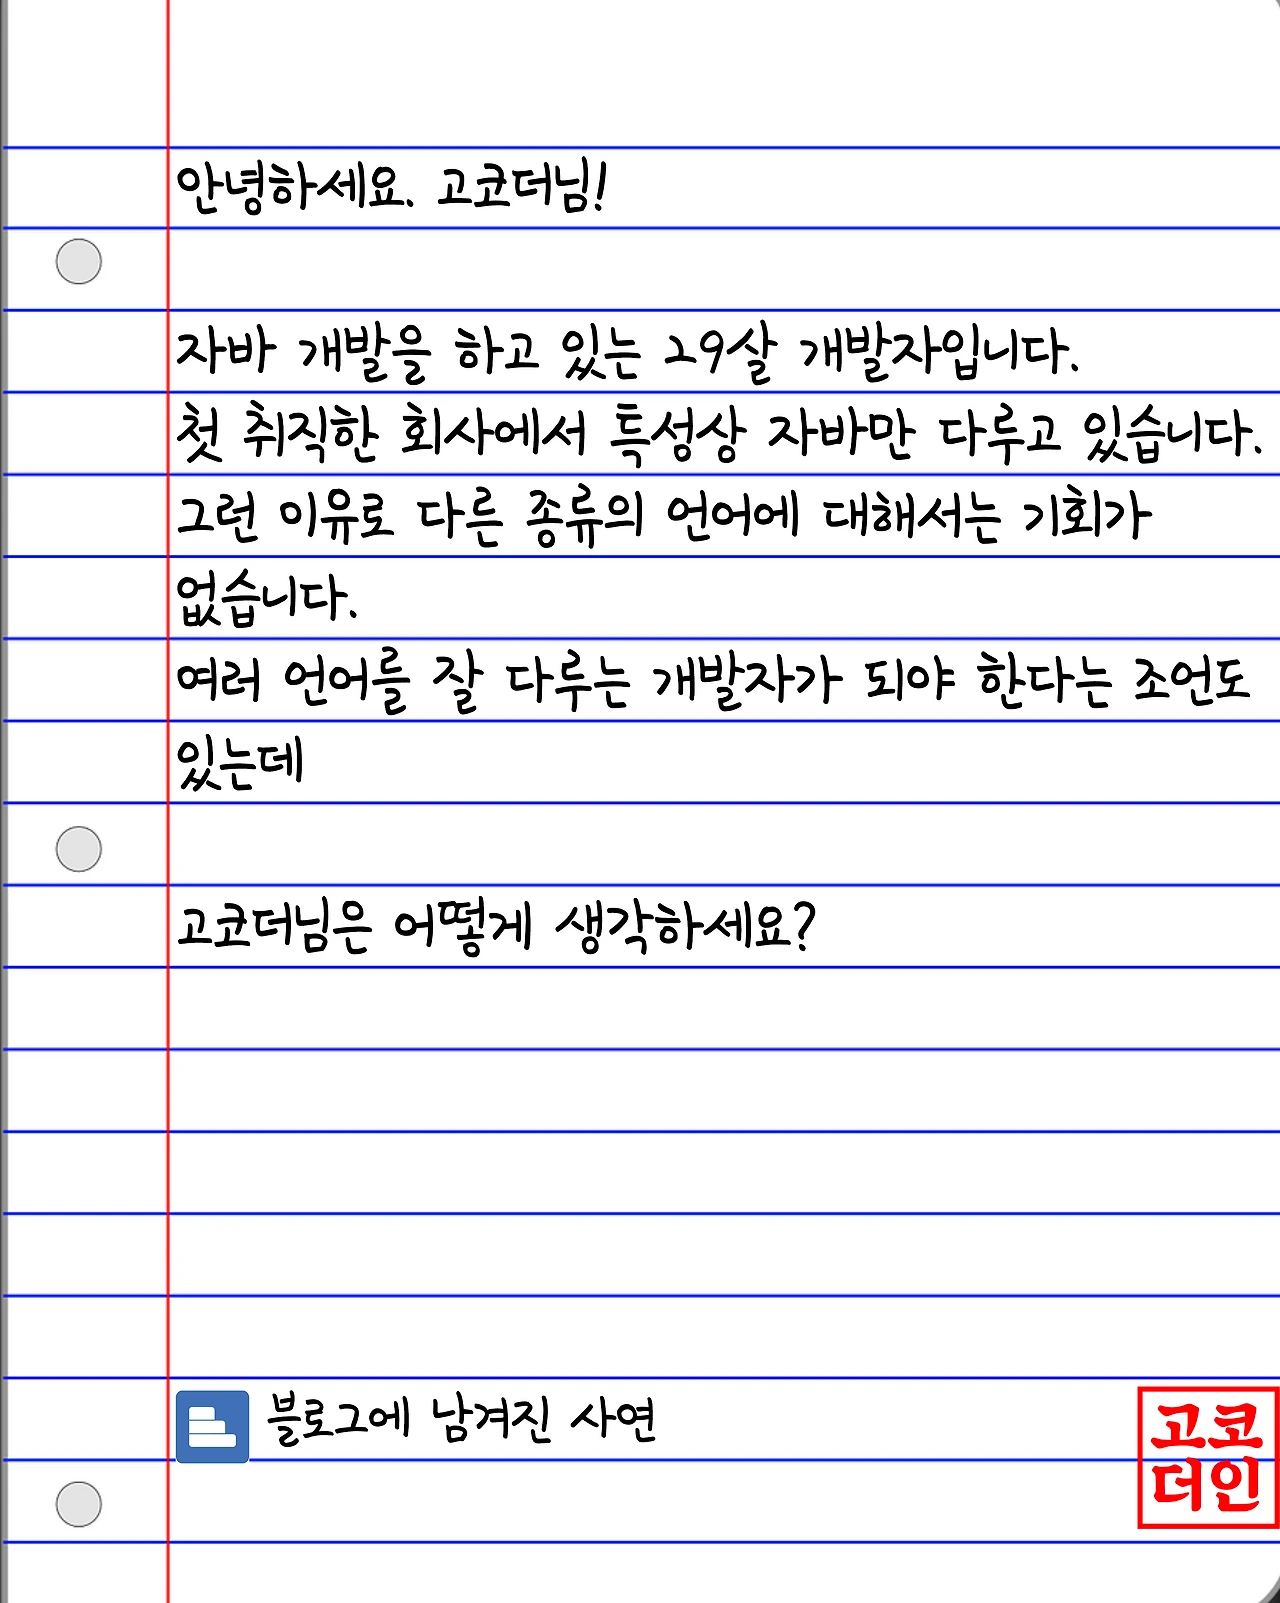 안녕하세요. 고코더님!
자바 개발을 하고 있는 29살 개발자입니다.
첫 취직한 회사에서 특성상 자바만 다루고 있습니다.
그런 이유로 다른 종류의 언어에 대해서는 기회가
없습니다.
여러 언어를 잘 다루는 개발자가 되야 한다는 조언도
있는데
고코더님은 어떻게 생각하세요?
블로그에 남겨진 사연
고코
더인